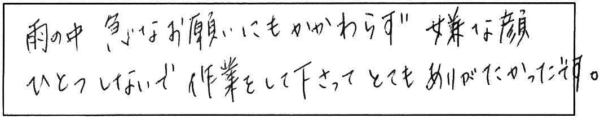 雨の中 急なお願いにもかかわらず 嫌な顔
ひとつしないで 作業をして下さって とても ありがたかったです。